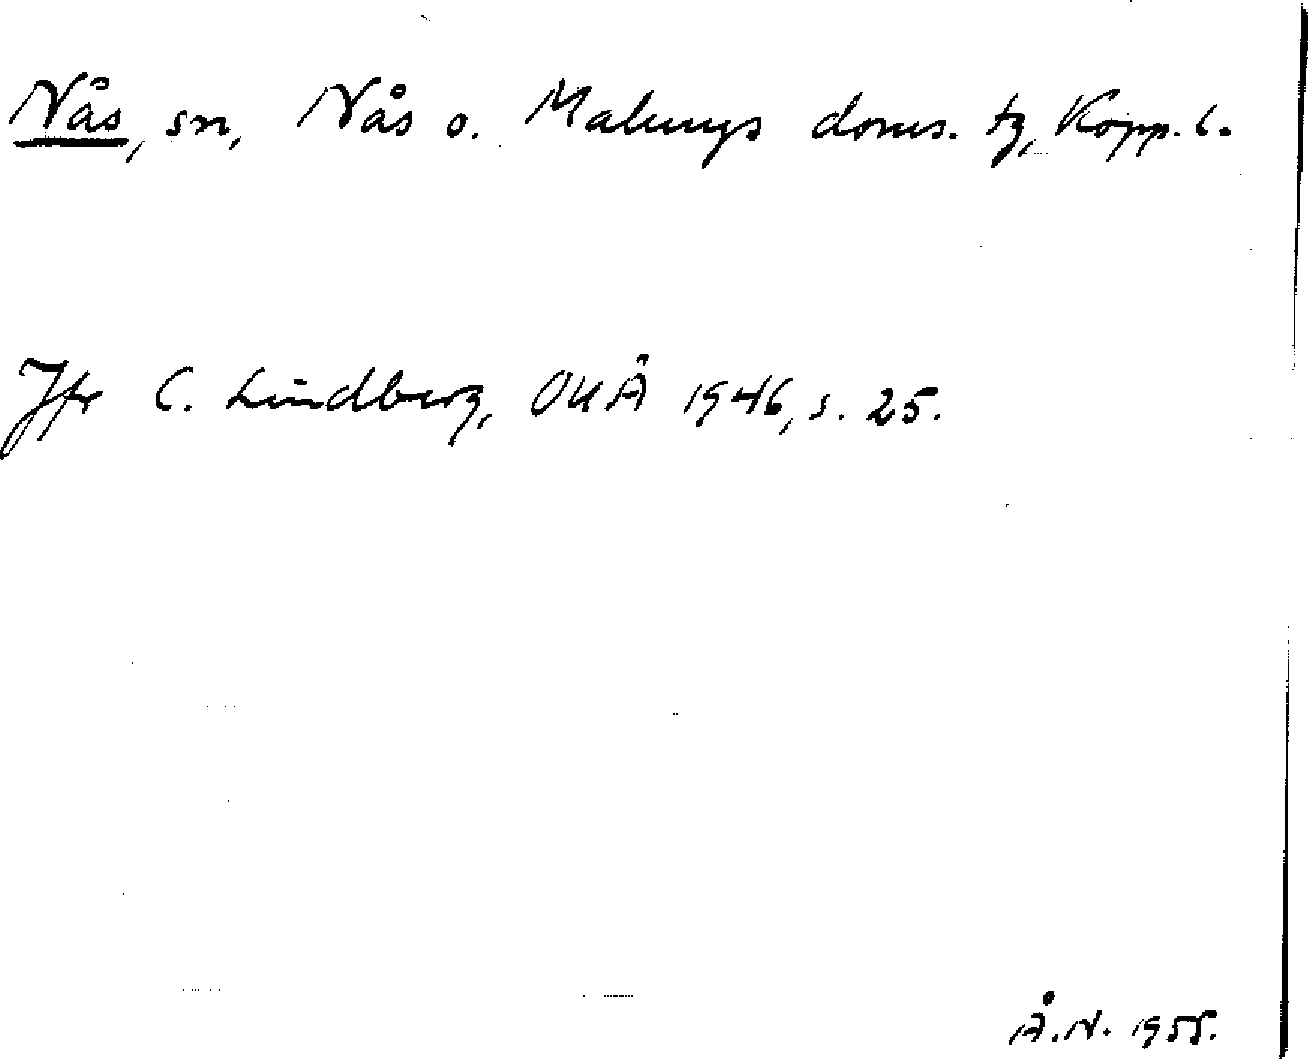 Nås, sn, Nås o. Malungs doms. tg, Kopp. l.
Jfr C. Lindberg, OUÅ 1946, s. 25.
Å.N. 1955.